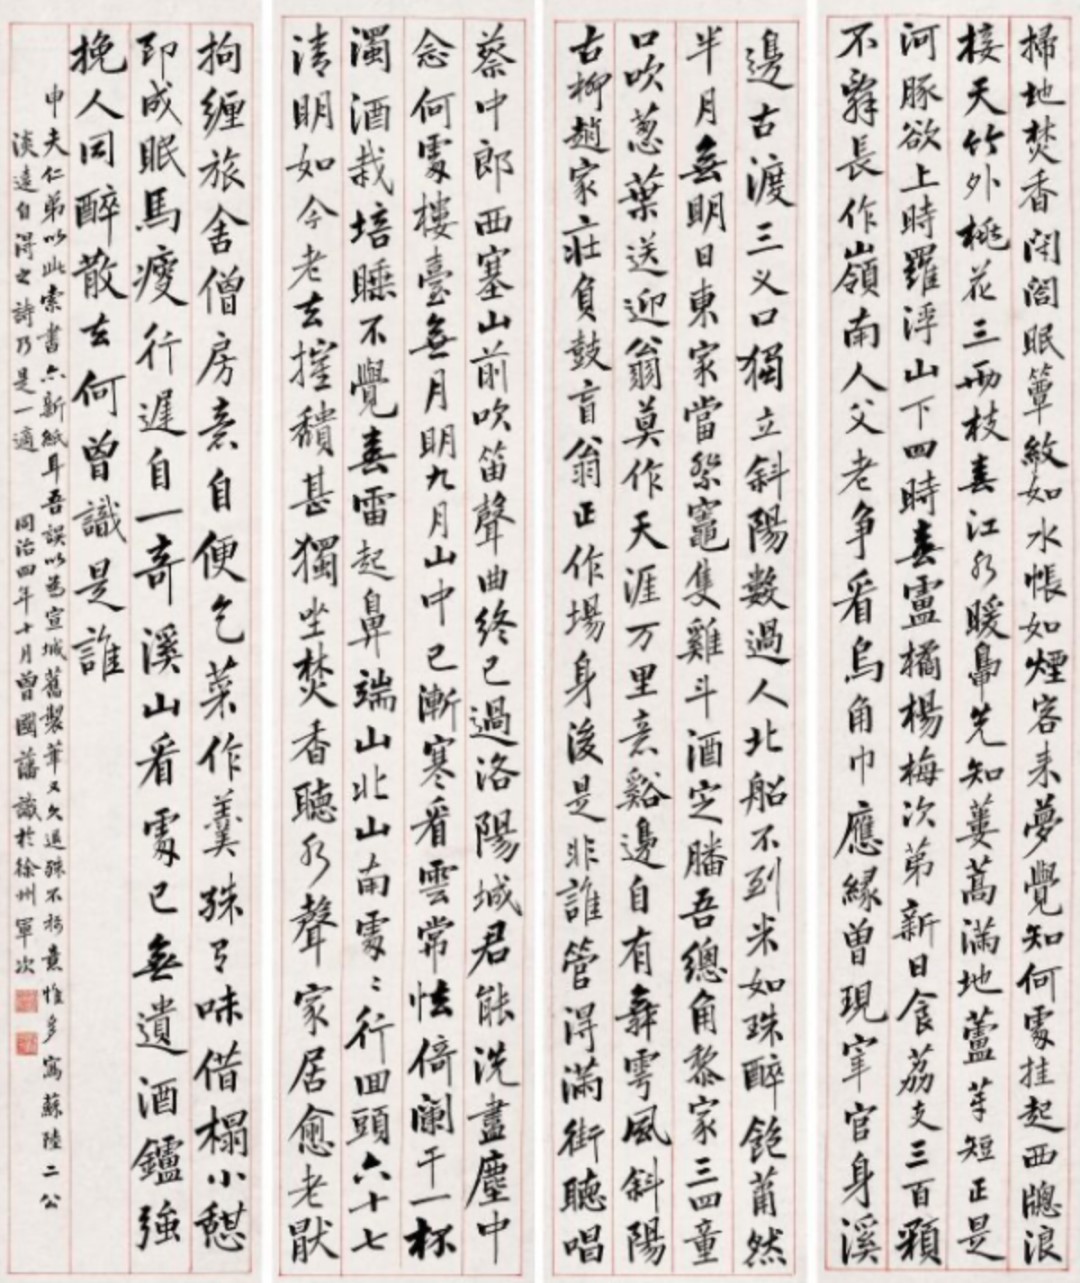 掃地焚香閉閤眠簟紋如水帳如煙客来夢覺知何處挂起西牕浪
接天竹外桃花三兩枝春江水暖鳧先知蔞蒿滿地蘆芽短正是
河豚欲上時羅浮山下四時春盧橘楊梅次第新日食荔支三百顆
不辭長作嶺南人父老爭看烏角巾應緣曾現宰官身溪
邊古渡三义口獨立斜陽數過人北船不到米如珠醉飽蕭然
半月無明日東家當祭竈隻雞斗酒定膰吾總角黎家三四童
口吹葱葉送迎翁莫作天涯万里意谿邊自有舞雩風斜陽
古柳趙家莊負鼓盲翁正作場身後是非誰管得滿街聽唱
蔡中郎西塞山前吹笛聲曲終已過洛陽城君能洗盡塵中
念何處樓臺無月明九月山中已漸寒看雲常怯倚闌干一杯
濁酒栽培睡不覺春雷起鼻端山北山南處〻行回頭六十七
清明如今老去摧穨甚獨坐焚香聽水聲家居愈老厭
拘纏旅舍僧房意自便乞菜作羹殊有味借榻小憩
即成眠馬瘦行遲自一奇溪山看處已無遺酒鑪強
挽人同醉散去何曾識是誰
申夫仁弟以此索書六新紙耳吾誤以為宣城舊製筆又久退殊不称意惟多寫蘇陸二公
淡遠自得之詩乃是一適 同治四年十月曾國藩識於徐州軍次